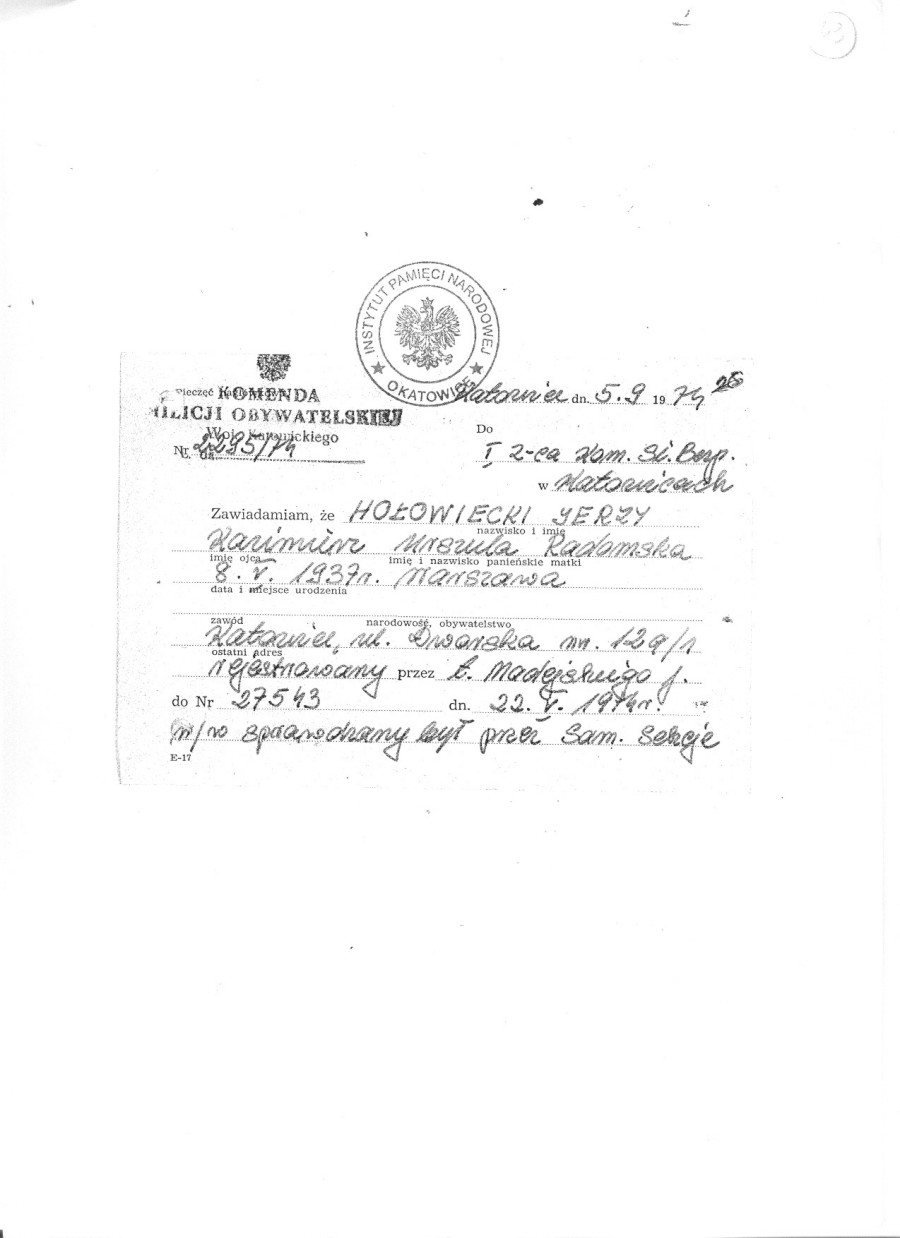 INSTYTUT PAMIĘCI NARODOWEJ
O KATOWICE
Pieczęć
KOMENDA
MILICJI OBYWATELSKIEJ
Woj. Katowickiego
Nr 2295/74
Katowice dn. 5.9 1974
26
Do
I Z-ca Kom. Sł. Bezp.
w Katowicach
Zawiadamiam, że HOŁOWIECKI JERZY
nazwisko i imię
Kazimierz Urszula Radomska
imię ojca imię i nazwisko panieńskie matki
8. V. 1937r. Warszawa
data i miejsce urodzenia
zawód narodowość, obywatelstwo
Katowice, ul. Dworska nr. 12a/1
ostatni adres
rejestrowany przez t. Madejskiego J.
do Nr 27543 dn. 22. V. 1974r.
w/w sprawdzany był przez Sam. Sekcje
E-17